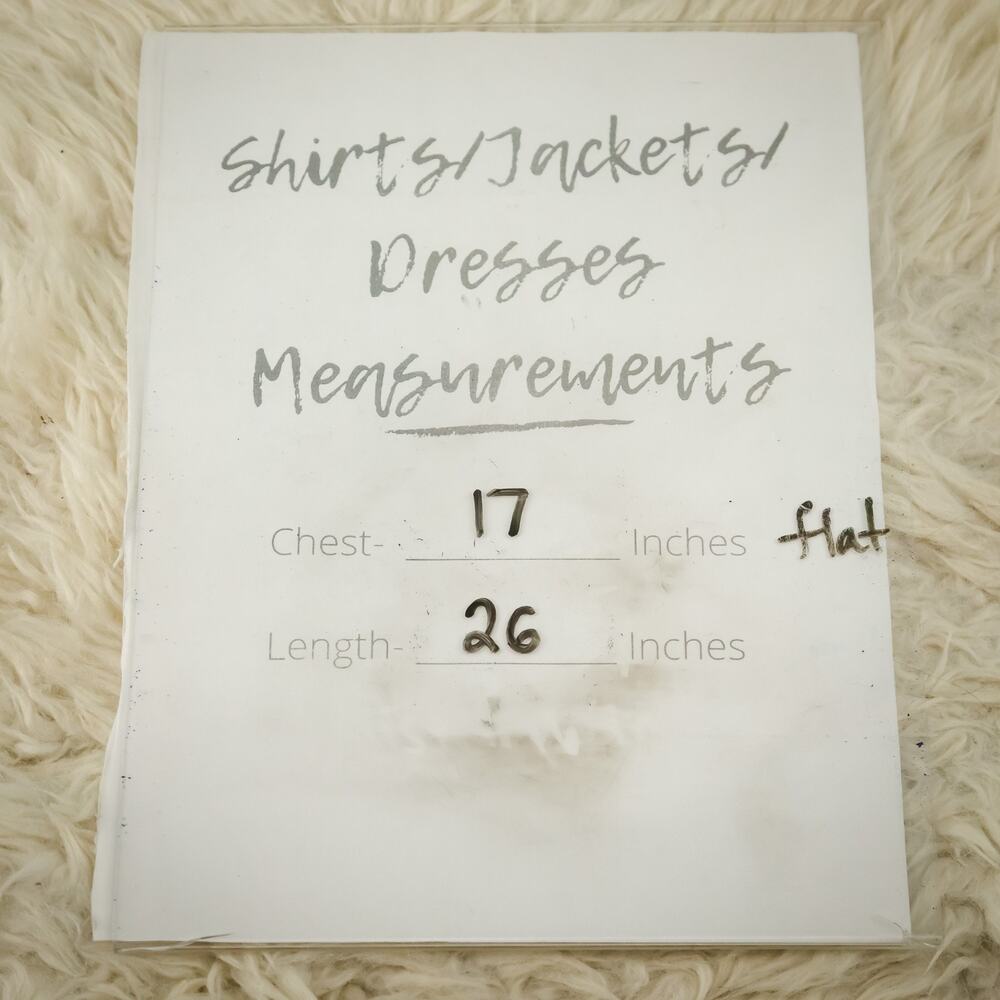 Shirts/Jackets/
Dresses
Measurements
Chest- 17 Inches flat
Length- 26 Inches